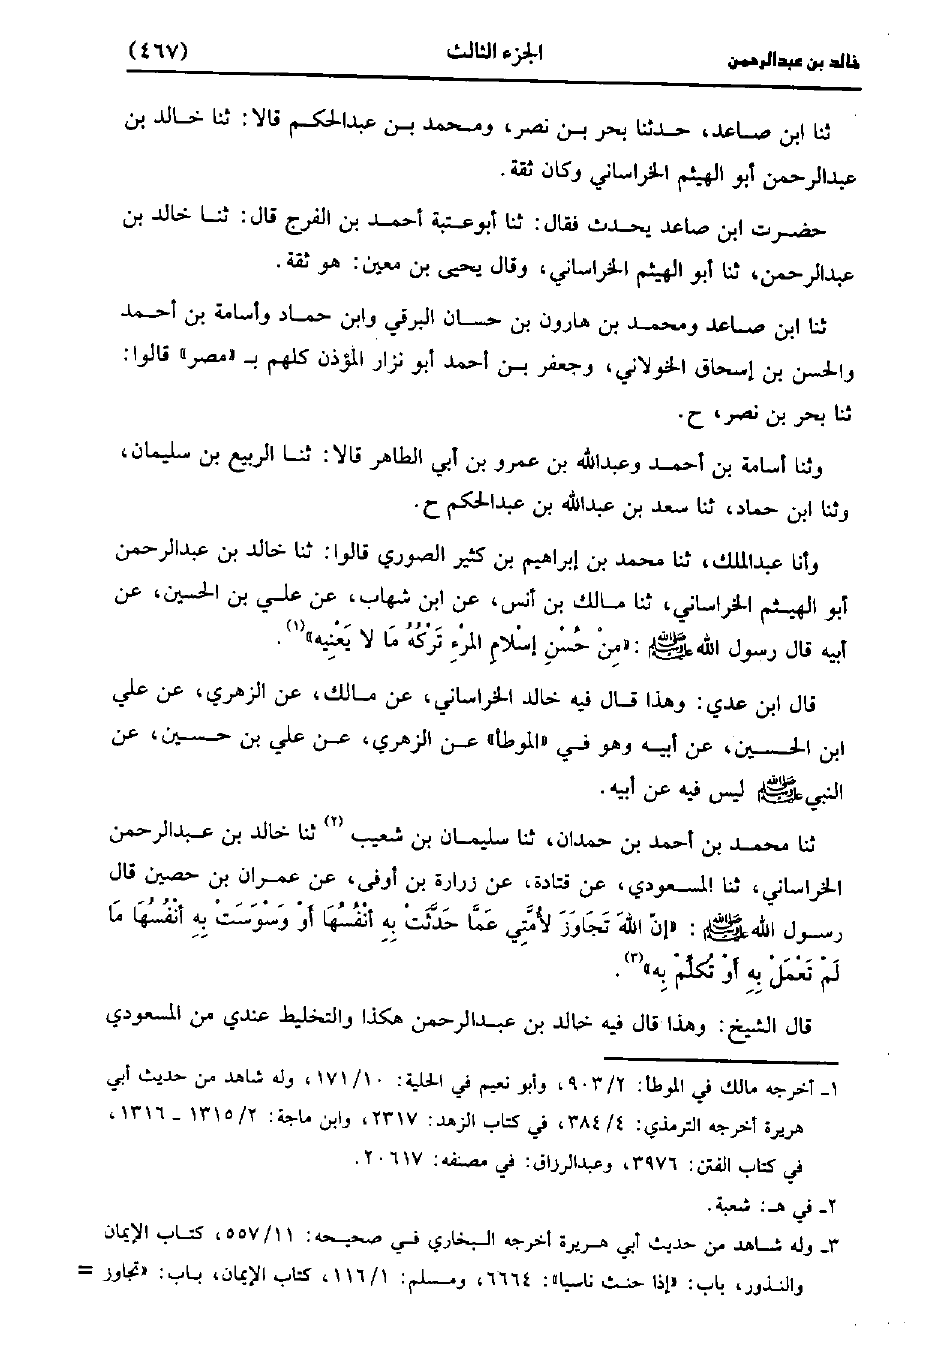 خالد بن عبدالرحمن الجزء الثالث (٤٦٧)
ثنا ابن صاعد، حدثنا بحر بن نصر، ومحمد بن عبدالحكم قالا: ثنا خالد بن
عبدالرحمن أبو الهيثم الخراساني وكان ثقة.
حضرت ابن صاعد يحدث فقال: ثنا أبوعتبة أحمد بن الفرج قال: ثنا خالد بن
عبدالرحمن، ثنا أبو الهيثم الخراساني، وقال يحيى بن معين: هو ثقة.
ثنا ابن صاعد ومحمد بن هارون بن حسان البرقي وابن حماد وأسامة بن أحمد
والحسن بن إسحاق الخولاني، وجعفر بن أحمد أبو نزار المؤذن كلهم بـ «مصر» قالوا:
ثنا بحر بن نصر، ح.
وثنا أسامة بن أحمد وعبدالله بن عمرو بن أبي الطاهر قالا: ثنا الربيع بن سليمان،
وثنا ابن حماد، ثنا سعد بن عبدالله بن عبدالحكم ح.
وأنا عبدالملك، ثنا محمد بن إبراهيم بن كثير الصوري قالوا: ثنا خالد بن عبدالرحمن
أبو الهيثم الخراساني، ثنا مالك بن أنس، عن ابن شهاب، عن علي بن الحسين، عن
أبيه قال رسول الله ﷺ: «مِنْ حُسْنِ إسْلَامِ المرْءِ تَرْكُهُ مَا لا يَعْنِيه»(١).
قال ابن عدي: وهذا قال فيه خالد الخراساني، عن مالك، عن الزهري، عن علي
ابن الحسين، عن أبيه وهو في «الموطأ» عن الزهري، عن علي بن حسين، عن
النبي ﷺ ليس فيه عن أبيه.
ثنا محمد بن أحمد بن حمدان، ثنا سليمان بن شعيب(٢) ثنا خالد بن عبدالرحمن
الخراساني، ثنا المسعودي، عن قتادة، عن زرارة بن أوفى، عن عمران بن حصين قال
رسول الله ﷺ: «إنَّ اللهَ تَجَاوَزَ لأُمَّتِي عَمَّا حَدَّثَتْ بِهِ أنْفُسُهَا أوْ وَسْوَسَتْ بِهِ أنْفُسُهَا مَا
لَمْ تَعْمَلْ بِهِ أوْ تُكَلِّمْ بِه»(٣).
قال الشيخ: وهذا قال فيه خالد بن عبدالرحمن هكذا والتخليط عندي من المسعودي
١ـ أخرجه مالك في الموطأ: ٩٠٣/٢، وأبو نعيم في الحلية: ١٧١/١٠، وله شاهد من حديث أبي
هريرة أخرجه الترمذي: ٣٨٤/٤، في كتاب الزهد: ٢٣١٧، وابن ماجة: ١٣١٥/٢ ـ ١٣١٦،
في كتاب الفتن: ٣٩٧٦، وعبدالرزاق: في مصنفه: ٢٠٦١٧.
٢ـ في هـ: شعبة.
٣ـ وله شاهد من حديث أبي هريرة أخرجه البخاري في صحيحه: ٥٥٧/١١، كتاب الإيمان
والنذور، باب: «إذا حنث ناسيا»: ٦٦٦٤، ومسلم: ١١٦/١، كتاب الإيمان، باب: «تجاوز =